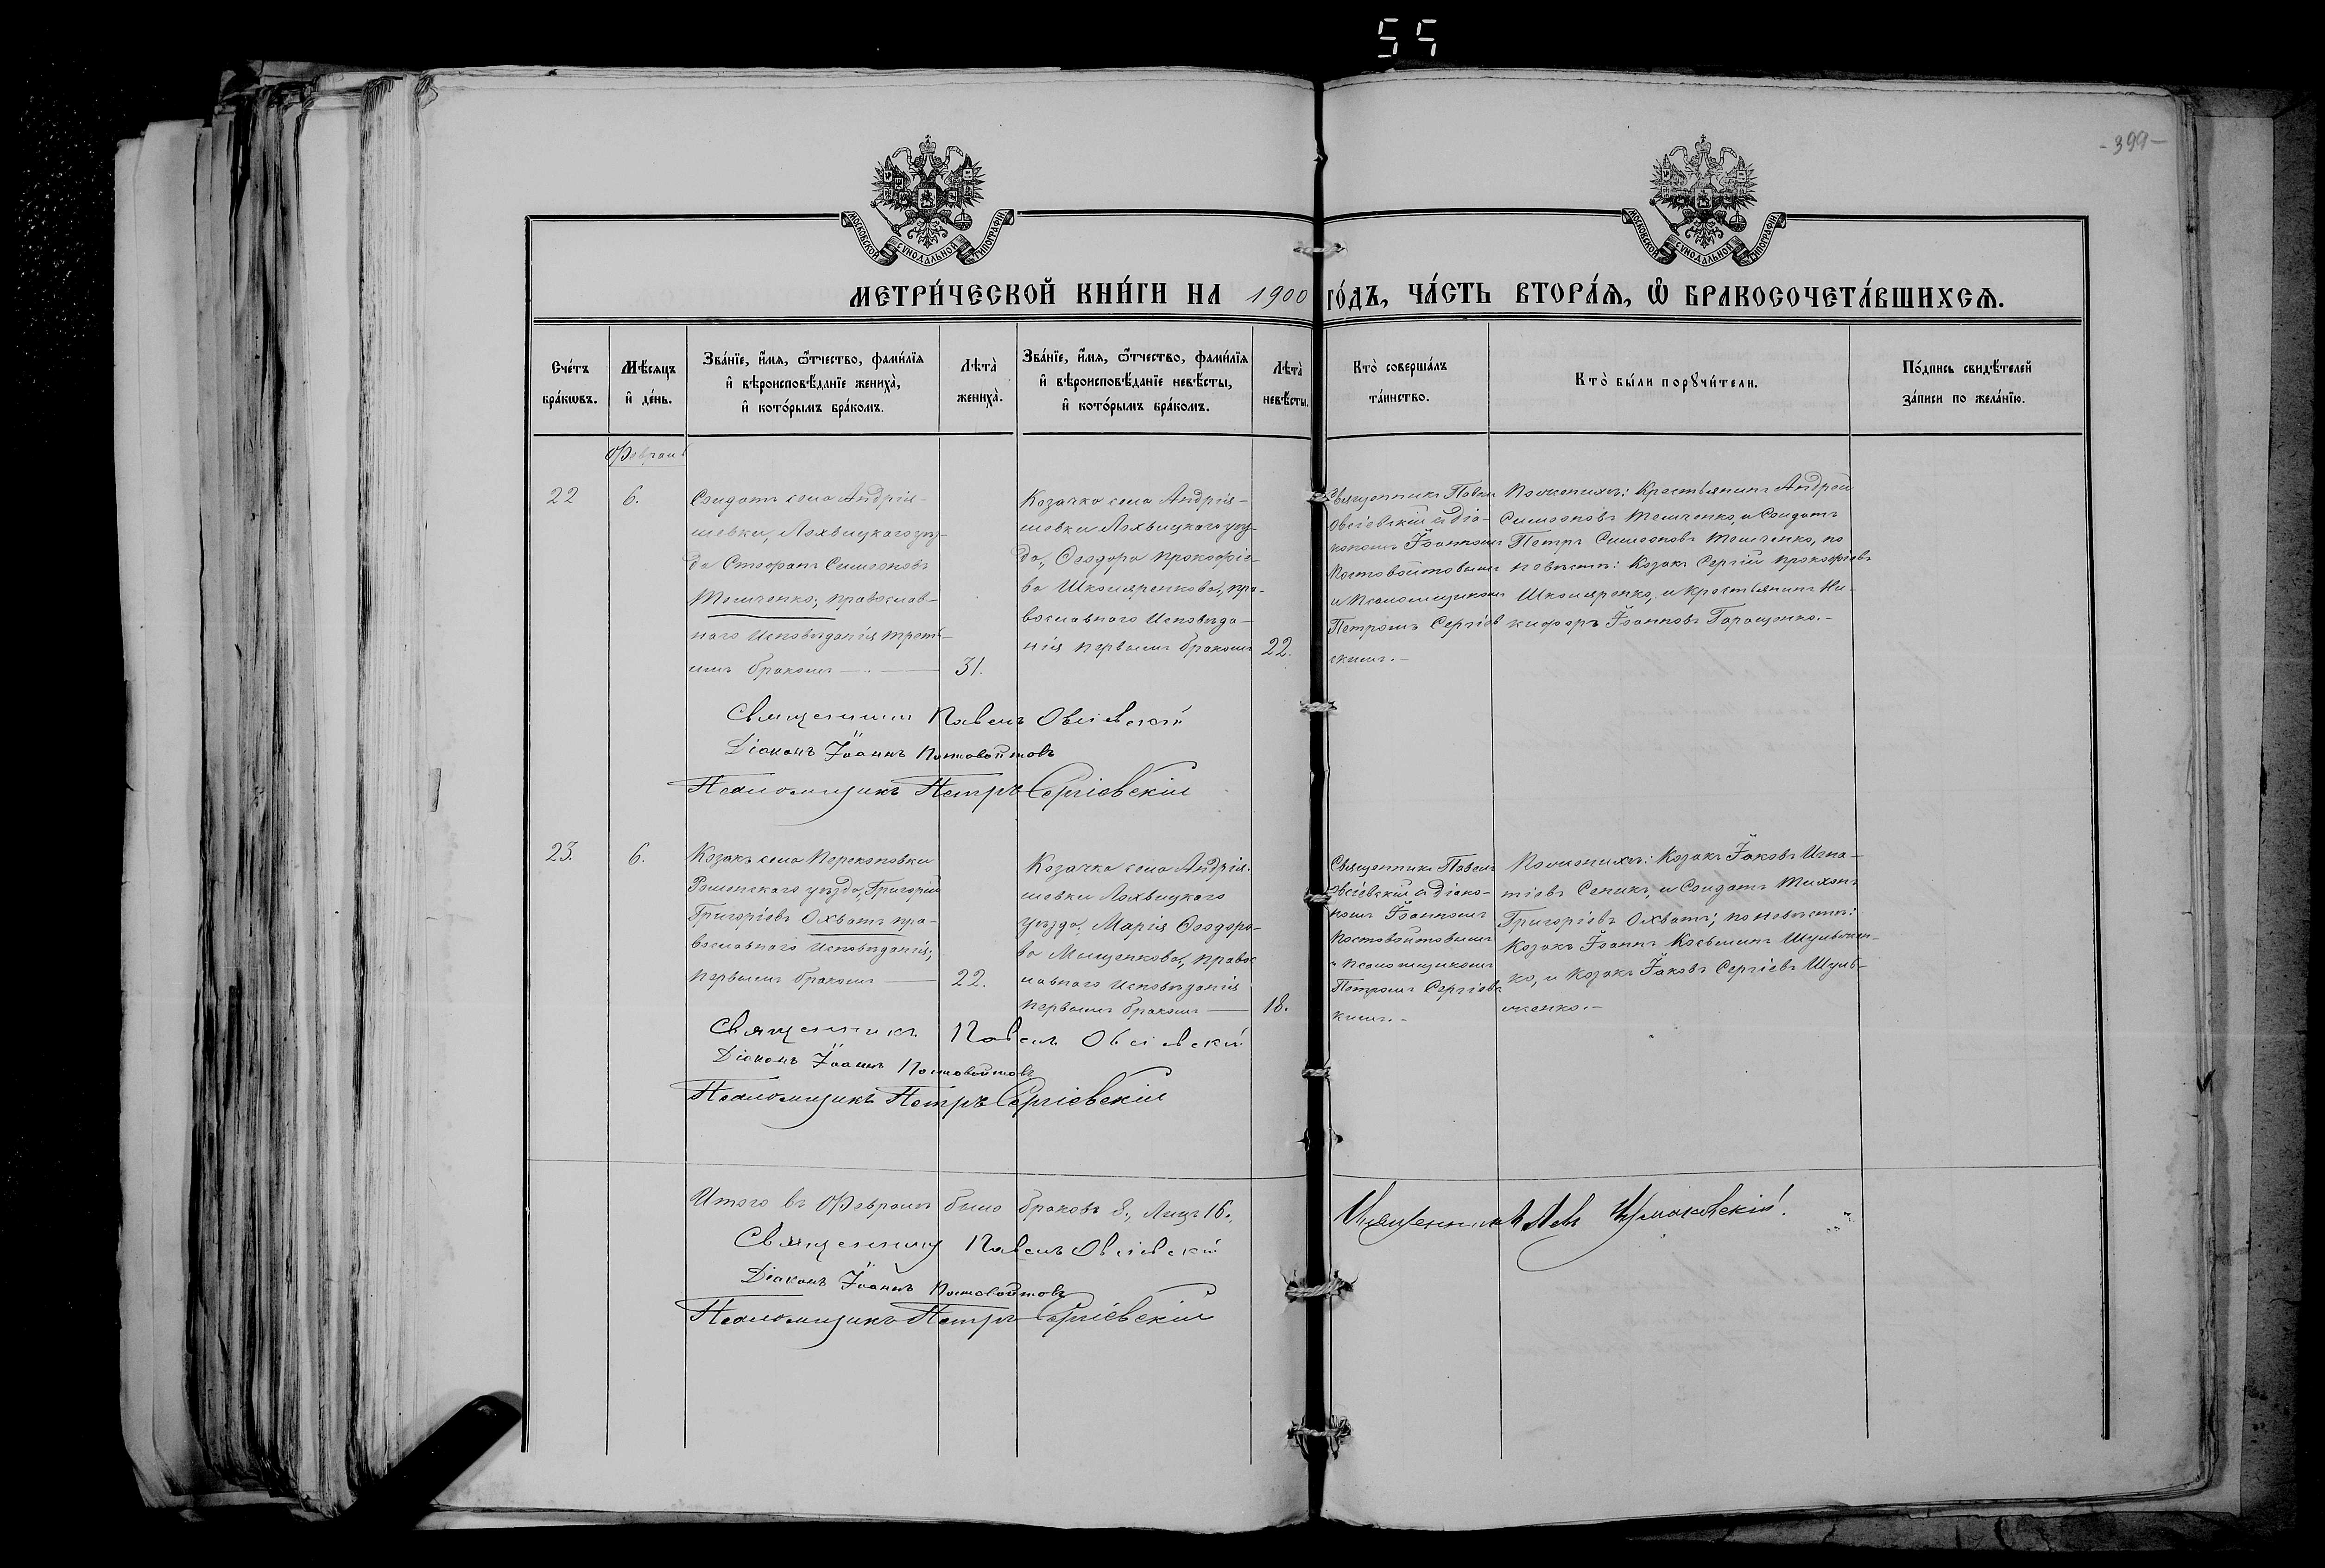 55
-399-
МОСКОВСКОЙ СѴНОДАЛЬНОЙ ТИПОГРАФІИ
МОСКОВСКОЙ СѴНОДАЛЬНОЙ ТИПОГРАФІИ
МЕТРИ́ЧЕСКОЙ КНИ́ГИ НА 1900 ГО́ДЪ, ЧА́СТЬ ВТОРА́Ѧ, Ѽ БРАКОСОЧЕТА́ВШИХСѦ.
Сче́тъ
бра́кѡвъ.
Мѣ́сяцъ
и҆ де́нь.
Зва́нїе, и҆́мя, ѻ҆́тчество, фами́лїя
и҆ вѣроисповѣ́данїе жениха̀,
и҆ кото́рымъ бра́комъ.
Лѣта̀
жениха̀.
Зва́нїе, и҆́мя, ѻ҆́тчество, фами́лїя
и҆ вѣроисповѣ́данїе невѣ́сты,
и҆ кото́рымъ бра́комъ.
Лѣта̀
невѣ́сты.
Кто̀ соверша́лъ
та́инство.
Кто̀ бы́ли порꙋчи́тели.
По́дпись свидѣ́телей
за́писи по жела́нїю.
Февраль
22
6.
Солдатъ села Андрія-
шевки, Лохвицкаго уѣз-
да Стефанъ Симеоновъ
Темченко, православ-
наго исповѣданія треть-
имъ бракомъ
31.
Козачка села Андрія-
шевки Лохвицкаго уѣз-
да, Ѳеодора Прокофіе-
ва Школяренкова, пра-
вославнаго исповѣда-
нія первымъ бракомъ
22.
Священникъ Павелъ
Овсіевскій съ діа-
кономъ Іоанномъ
Постовойтовымъ
и псаломщикомъ
Петромъ Сергіев
скимъ.-
По женихѣ: Крестьянинъ Андрей
Симеоновъ Темченко, и Солдатъ
Петръ Симеоновъ Темченко, по
невѣстѣ: Козакъ Сергій Прокофіевъ
Школяренко, и крестьянинъ Ни-
кифоръ Іоанновъ Геращенко.-
Священникъ Павелъ Овсіевскій
Діаконъ Іоаннъ Постовойтовъ
Псаломщикъ Петръ Сергіевскій
23.
6.
Козакъ села Перекоповки
Роменскаго уѣзда, Григорій
Григоріевъ Охватъ пра-
вославнаго исповѣданія;
первымъ бракомъ
22.
Козачка села Андрія-
шевки Лохвицкаго
уѣзда, Марія Ѳеодоро-
ва Мищенкова, правос
лавнаго исповѣданія
первымъ бракомъ
18.
Священникъ Павелъ
Овсіевскій съ діако-
номъ Іоанномъ
Постовойтовымъ
и псаломщикомъ
Петромъ Сергіевс
кимъ.-
По женихѣ: Козакъ Іаковъ Игна-
тіевъ Сеникъ, и Солдатъ Тихонъ
Григоріевъ Охватъ; по невѣстѣ:
Козакъ Іоаннъ Косьминъ Шульжен-
ко, и Козакъ Іаковъ Сергіевъ Шуль-
женко.-
Священникъ Павелъ Овсіевскій
Діаконъ Іоаннъ Постовойтовъ
Псаломщикъ Петръ Сергіевскій
Итого въ Февралѣ было браковъ 8., Лицъ 16.
Священникъ Павелъ Овсіевскій
Діаконъ Іоаннъ Постовойтовъ
Псаломщикъ Петръ Сергіевскій
Священникъ